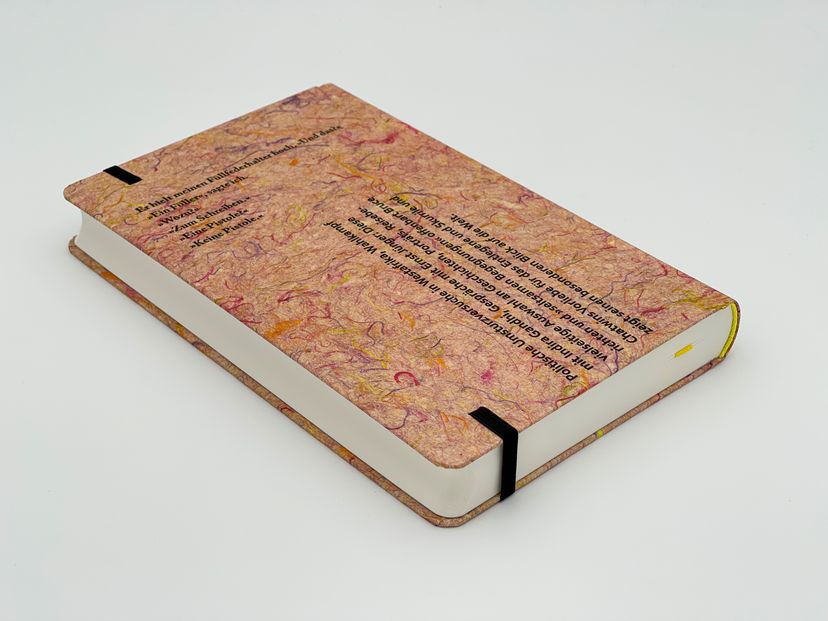 Er hielt meinen Füllfederhalter hoch. »Und das?«
»Ein Füller«, sagte ich.
»Wozu?«
»Zum Schreiben.«
»Eine Pistole?«
»Keine Pistole.«
Politische Umsturzversuche in Westafrika, Wahlkampf
mit Indira Gandhi, Gespräche mit Ernst Jünger: Diese
vielseitige Auswahl an Geschichten, Porträts, Reisebe-
richten und »seltsamen Begegnungen« offenbart Bruce
Chatwins Vorliebe für das Entlegene und Skurrile und
zeigt seinen besonderen Blick auf die Welt.